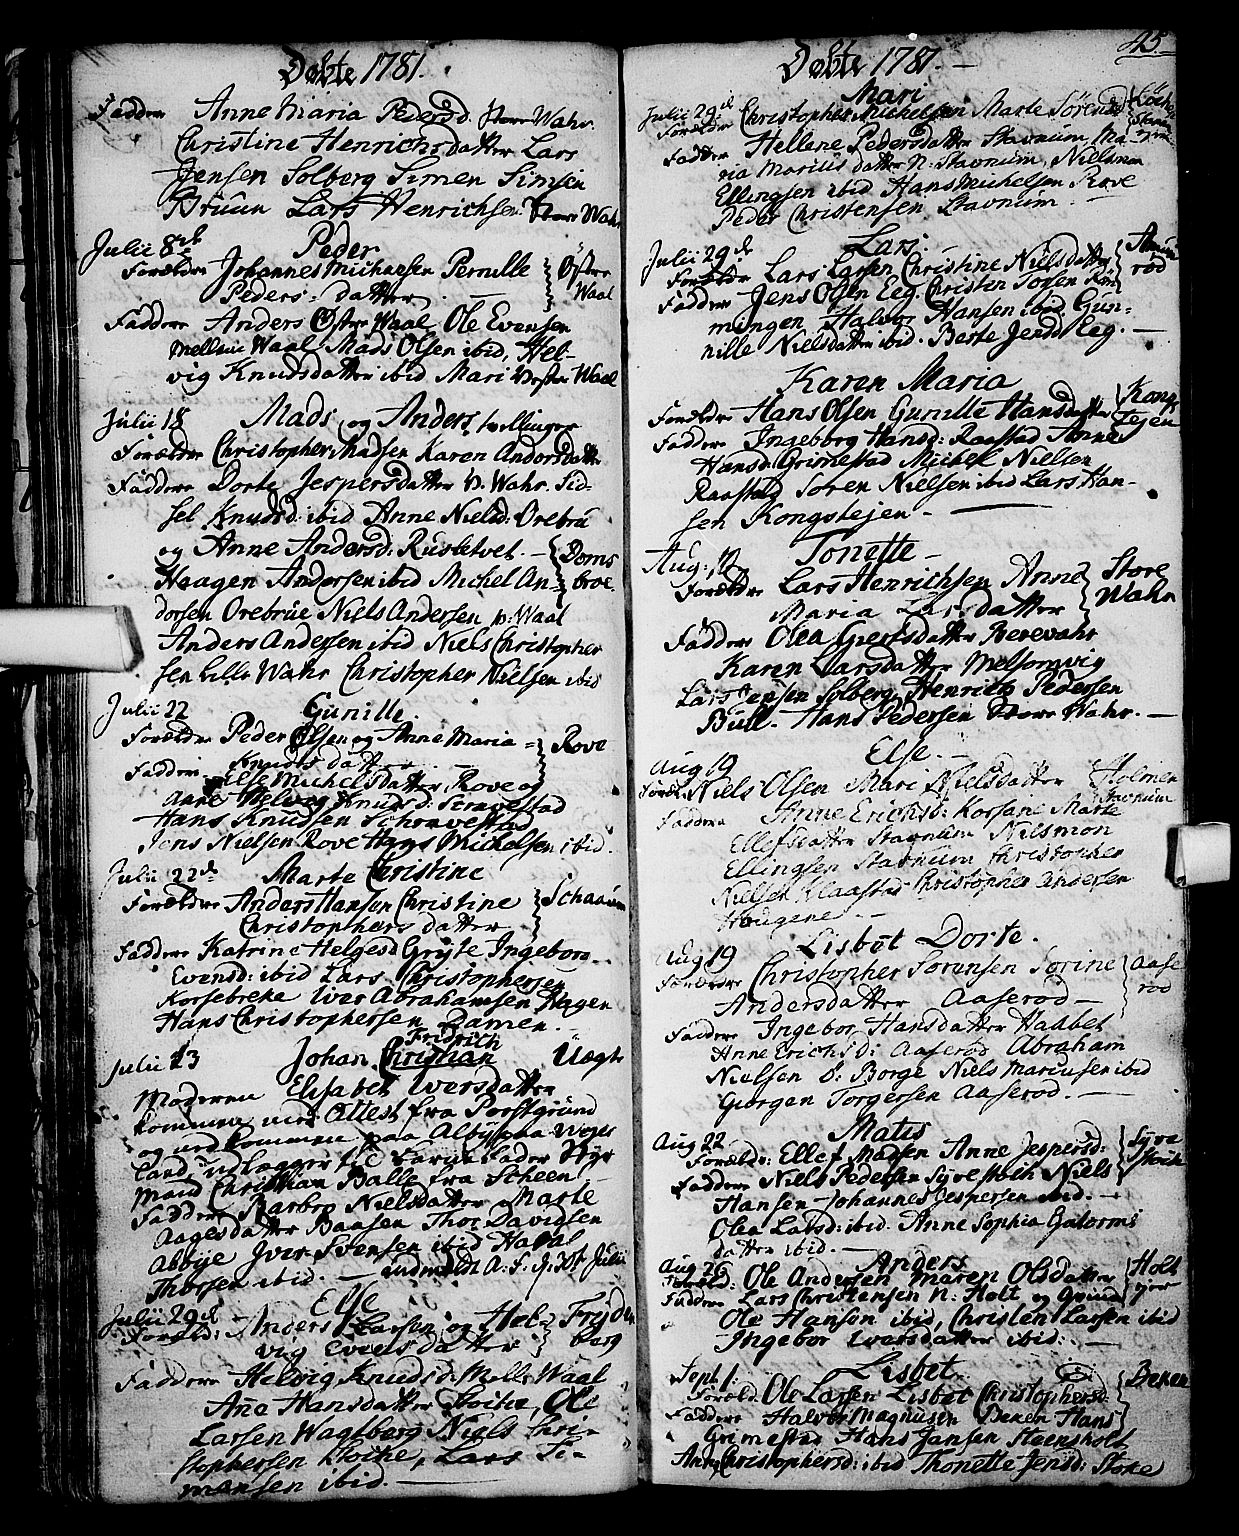 Døbte 1781.
Fadder Anne Maria Pedersd. Store Wahr.
Christine Henrichsdatter Lars
Jensen Solberg Simen Simsen
Bruun Lars Henrichsen Store Wahr
Julii 8de Peder
Forældre Johannes Michaelsen Pernille Øster
Peders-datter Waal
Faddere Anders Øster Waal Ole Evensen
Mellem Waal, Mads Olsen ibid, Hel-
vig Knudsdatter ibid Mari Vester Waal
Julii 18 Mads og Anders, tvillinger
Forældre Christopher Madsen Karen Andersdatter
Faddere Dorte Jespersdatter N. Wahr. Sid-
sel Knudsd: ibid Anne Nielsd: Orebrü
og Anne Andersd: Rusletvet. Doms
Haagen Andersen ibid Michel An- broe
dersen Orebrüe Niels Andersen N: Waal
Anders Andersen ibid Niels Christopher
sen Lille Wahr Christopher Nielsen ibid
Julii 22 Gunille
Forældre Peder Olsen og Anne Maria Rove
Knudsdatter
Faddere Else Michelsdatter Rove og
Anne Helvig Knudsd: Scravestad
Hans Knudsen Schravestad
Jens Nielsen Rove Hans Michelsen ibid.
Julii 22de Marte Christine
Forældre Anders Hansen Christine Schaaum
Christophersdatter
Faddere Katrine Helgesd Gryte Ingebor
Evensd: ibid Lars Christophersen
Korsebreke Iver Abrahamsen Hagen
Hans Christophersen Ramen.
Fridrich
Julii 23 Johan Christian Uægte
Moderen Elisabet Iversdatter
kommen med Attest fra Porsgrund
og nedkommen paa Albye paa Weyer
land, udlægger til Barnefader Styr
mand Christian Balle fra Scheen
Faddere Barbro Nielsdatter Marte
Aagesdatter Baasen Thor Davidsen
Abbye Iver Svensen ibid Halvol
Thorsen ibid. — indmeldt A: S. J. 30t Julii
Julii 29de Else
Foræld: Anders Larsen og Hel- Frydens
vig Evensdatter berg
Faddere Helvig Knudsd: Melle Waal
Ane Hansdatter Stoche, Ole
Larsen Wagtberg Niels Chri-
stophersen Stoche, Lars Si-
monsen ibid.
45.
Døbte 1781.
Mari
Julii 29de
Forældre Christopher Michelsen Marte Sørensd
Faddere Hellene Pedersdatter Stavnum, Ma-
ria Marilis datter N: Stavnum, Nielsmon
Ellingsen ibid Hans Michelsen Rove
Peder Christensen Stavnum.
Julii 29de Lars.
Forældre Lars Larsen Christine Nielsdatter rød
Faddere Jens Olsen Eeg. Christen Sørsen Røn
ningen Halvor Hansen ibid Gun-
nille Nielsdatter ibid. Berte Jensd Eeg.
Karen Maria
Forældre Hans Olsen Gunille Hansdatter Kongs
Faddere Ingeborg Hansd: Raastad Anne tejen
Hansd: Grimestad Michel Nielsen
Raastad Søren Nielsen ibid Lars Han-
sen Kongstejen.
Aug: 12 Tonette
Forældre Lars Henrichsen Anne Store
Maria Larsdatter Wahr
Faddere Olea Giertsdatter Berevahr
Karen Larsdatter Melsomvig
Lars Jensen Solberg, Henrich Pedersen
Bull. Hans Pedersen Store Wahr.
Else.
Aug 19
Foræld: Niels Olsen Mari Nielsdatter Holmen
Stavnum
Faddere Anne Erichsd: Korsane Marte
Ellefsdatter Stavnum Nilsmon
Ellingsen Stavnum Christopher
Nielsen Klaastad Christopher Andersen
Haugene.
Aug 19 Lisbet Dorte.
Forældre Christopher Sørensen Sørine Aase
Andersdatter Aaserød rød
Faddere Ingebor Hansdatter Haabet
Anne Erichsd: Aaserød Abraham
Nielsen Ø: Borge Niels Mariusen ibid
Giorgen Torgersen Aaserød.
Aug 22 Matis
Forældr: Ellef Madsen Anne Jespersd: Syre
Faddere Niels Pedersen Syrestoch Niels Stoch
Hansen Johannes Jespersen ibid.
Olea Larsd: ibid. Anne Sophia Gutorms
datter ibid.
Aug 26 Anders
Foræld: Ole Andersen Maren Olsdatter Holt
Faddere Lars Christensen N: Holt og
Ole Hanson ibid, Christen Larsen ibid
Ingebor Ivarsdatter ibid.
Sept 1. Lisbet.
Foræld: Ole Larsen Lisbet Christophersd: Beken
Faddere Halvor Magnusen Beken Hans
Grimestad Hans Jansen Steensholt
Anne Christophersd: ibid Thonette Jensd: Store